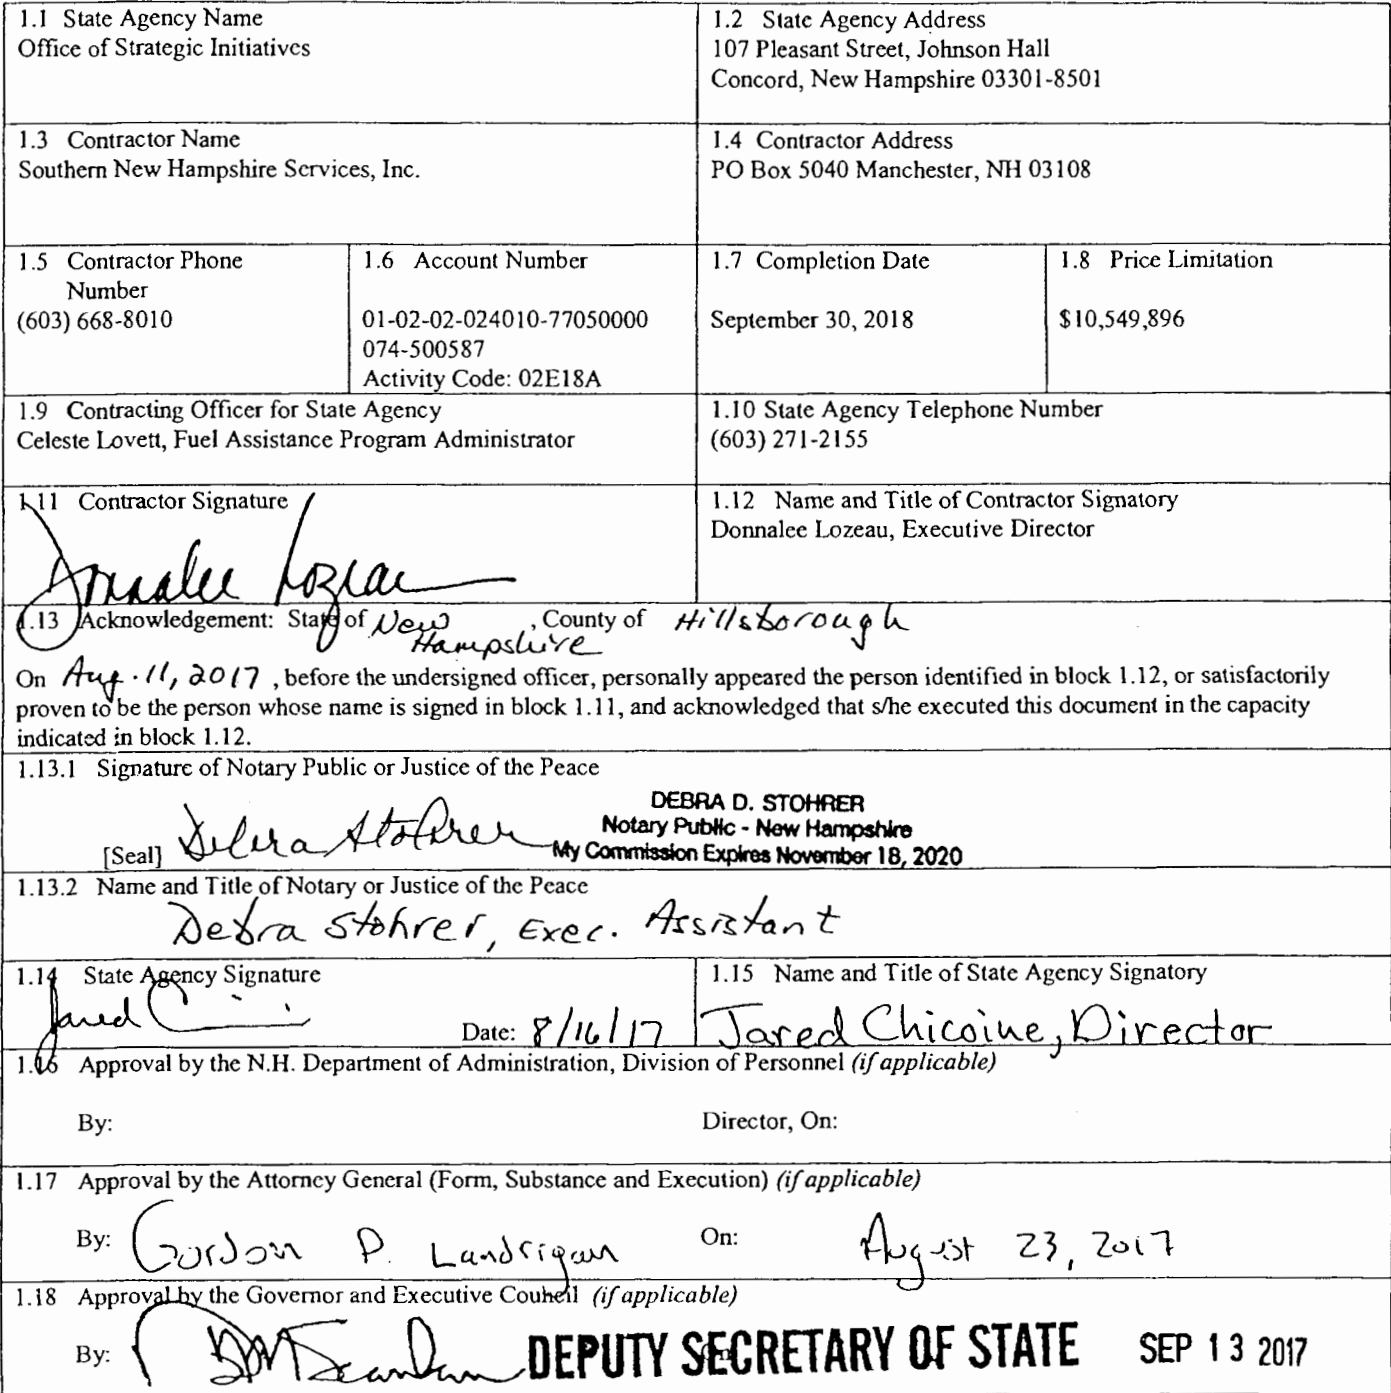 1.1 State Agency Name
Office of Strategic Initiatives
1.2 State Agency Address
107 Pleasant Street, Johnson Hall
Concord, New Hampshire 03301-8501
1.3 Contractor Name
Southern New Hampshire Services, Inc.
1.4 Contractor Address
PO Box 5040 Manchester, NH 03108
1.5 Contractor Phone
Number
(603) 668-8010
1.6 Account Number
01-02-02-024010-77050000
074-500587
Activity Code: 02E18A
1.7 Completion Date
September 30, 2018
1.8 Price Limitation
$10,549,896
1.9 Contracting Officer for State Agency
Celeste Lovett, Fuel Assistance Program Administrator
1.10 State Agency Telephone Number
(603) 271-2155
1.11 Contractor Signature
Donnalee Lozeau
1.12 Name and Title of Contractor Signatory
Donnalee Lozeau, Executive Director
1.13 Acknowledgement: State of New Hampshire, County of Hillsborough
On Aug. 11, 2017, before the undersigned officer, personally appeared the person identified in block 1.12, or satisfactorily
proven to be the person whose name is signed in block 1.11, and acknowledged that s/he executed this document in the capacity
indicated in block 1.12.
1.13.1 Signature of Notary Public or Justice of the Peace
DEBRA D. STOHRER
Notary Public - New Hampshire
My Commission Expires November 18, 2020
[Seal] Debra Stohrer
1.13.2 Name and Title of Notary or Justice of the Peace
Debra Stohrer, Exec. Assistant
1.14 State Agency Signature
Jared
Date: 8/16/17
1.15 Name and Title of State Agency Signatory
Jared Chicoine, Director
1.16 Approval by the N.H. Department of Administration, Division of Personnel (if applicable)
By: Director, On:
1.17 Approval by the Attorney General (Form, Substance and Execution) (if applicable)
By: Gordon P. Landrigan On: August 23, 2017
1.18 Approval by the Governor and Executive Council (if applicable)
By: DEPUTY SECRETARY OF STATE SEP 13 2017